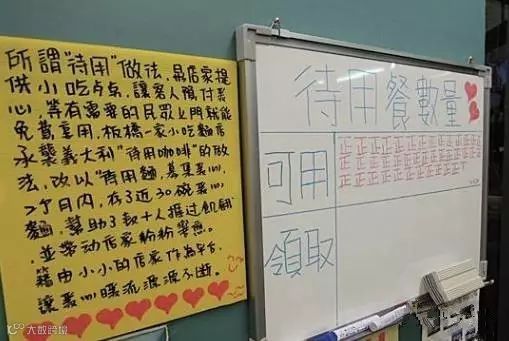 所謂"待用"做法,是店家提
供小吃点点,讓客人預付爱
心,等有需要的民眾上門就能
免費享用,板橋一家小吃麵店
承襲義大利"待用咖啡"的做
法,改以"待用麵,募集爱心,
2个月內,存了近30碗爱心
麵,幫助了數十人 过飢餓
並帶动店家粉粉響應.
藉由小小的店家作為平台.
讓爱心暖流源源不断.
待用餐數量
可用
正正正正正正正正正正正正
正正正正正正正正正正正正
正正正正正正正正正正正
領取
大數跨境